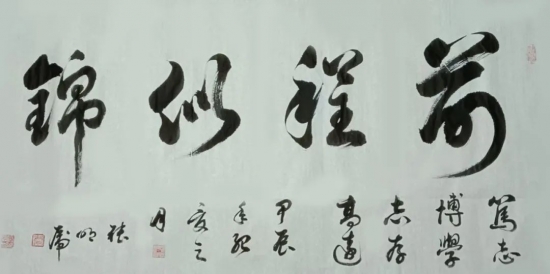 前程似錦
篤志
博學
志存
高遠
甲辰
年
夏之
月